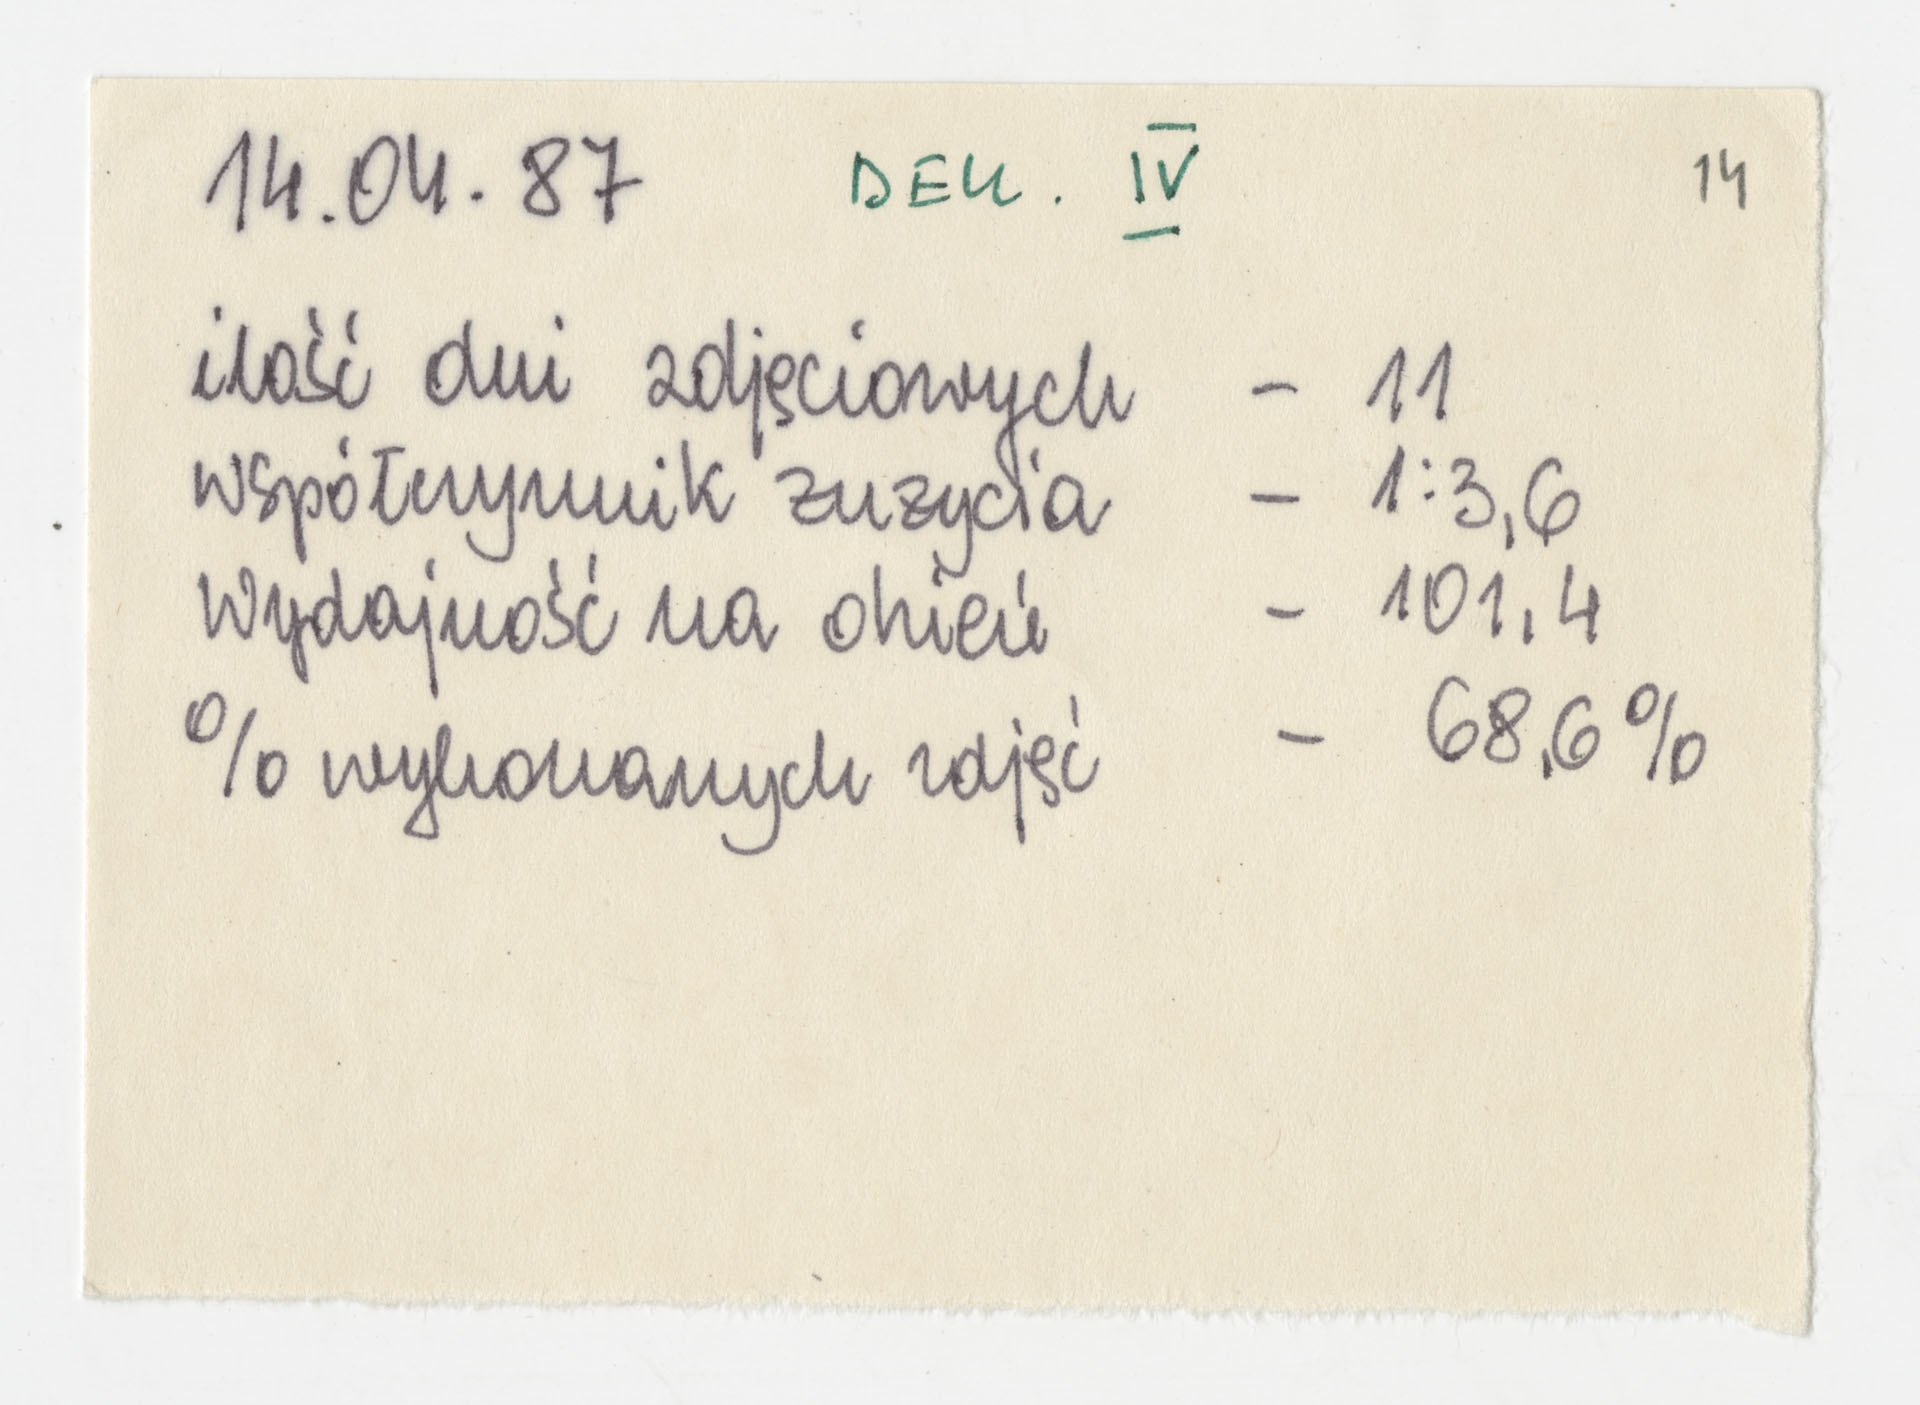 14.04.87 DEK. IV 14
ilość dni zdjęciowych - 11
współczynnik zużycia - 1:3,6
wydajność na dzień - 101,4
% wykonanych zdjęć - 68,6%